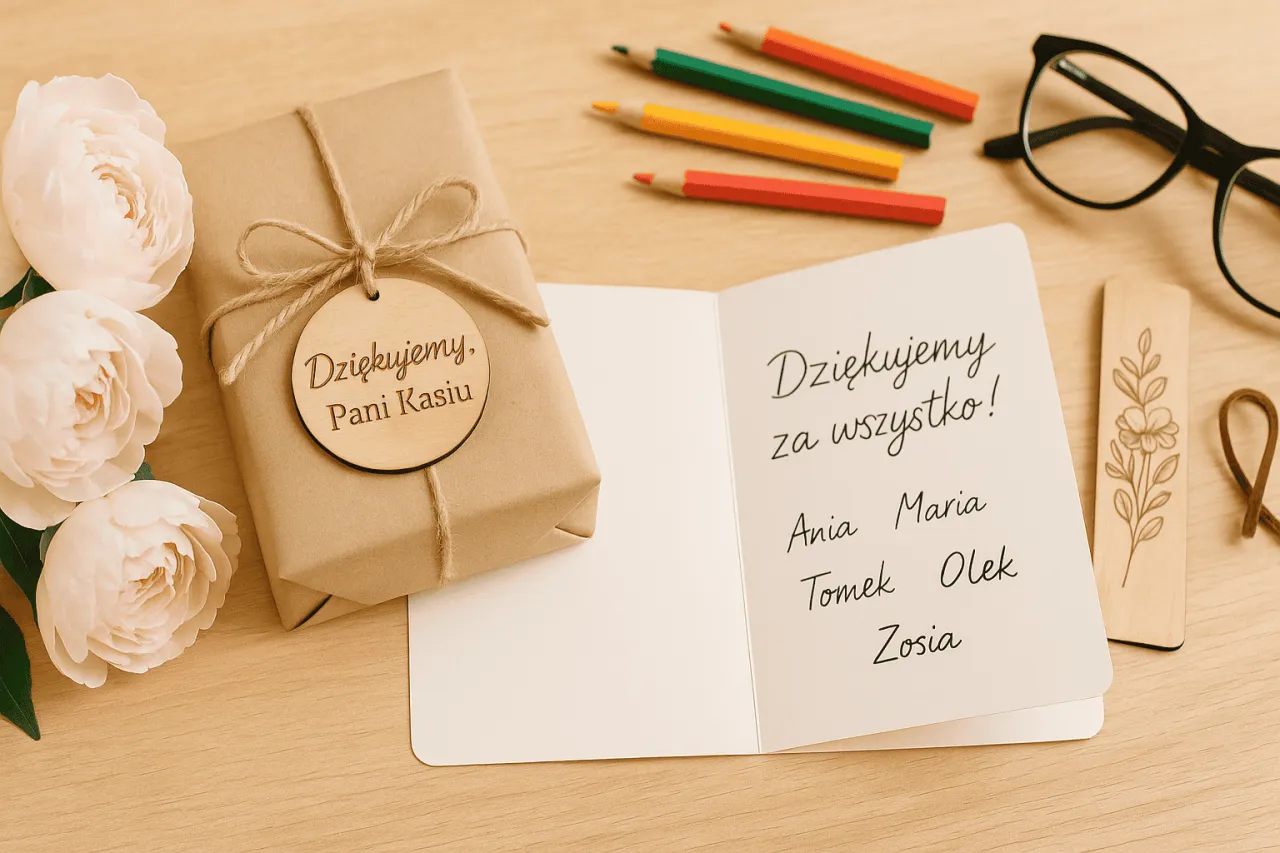 Dziękujemy,
Pani Kasiu
Dziękujemy
za wszystko!
Ania Maria
Tomek Olek
Zosia